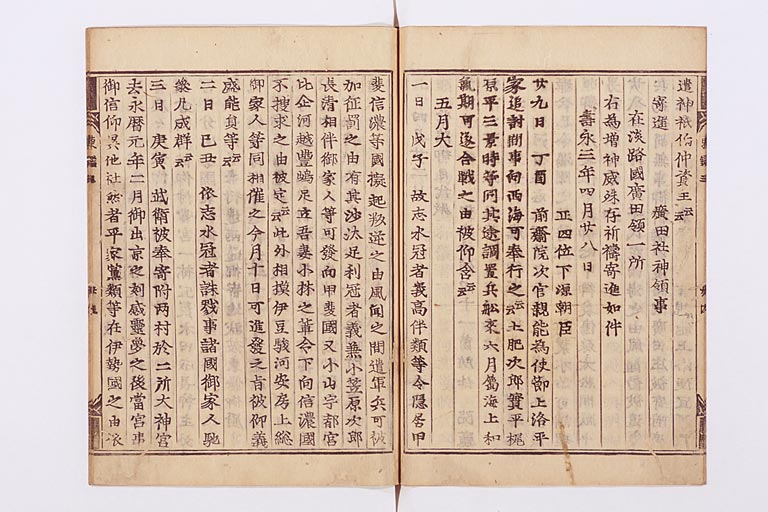 遣神祇伯仲資王云云
寄進　廣田社神領事
在淡路國廣田領一所
右爲増神威殊存祈禱寄進如件
壽永三年四月廿八日
正四位下源朝臣
廿九日　丁酉　前齋院次官親能爲使節上洛平
家追討間事向西海可奉行之云云土肥次郎實平梶
原平三景時等同首途調置兵舩來六月属海上和
氣期可遂合戰之由被仰含云云
五月大
一日　戊子　故志水冠者義高伴類等令隱居甲
斐信濃等國擬起叛逆之由風聞之間遣軍兵可被
加征罸之由有其沙汰足利冠者義兼小笠原次郎
長清相伴御家人等可發向甲斐國又小山宇都宮
比企河越豐嶋足立吾妻小林之輩令下向信濃國
可搜求之由被定云云此外相摸伊豆駿河安房上総
御家人等同相催之今月十日可進發之旨被仰義
盛能員等云云
二日　己丑　依志水冠者誅戮事諸國御家人馳
參凡成群云云
三日　庚寅　武衛被奉寄附両村於二所大神宮
去永暦元年二月御出京之刻感靈夢之後當宮事
御信仰異他社然者平家黨類等在伊勢國之由依